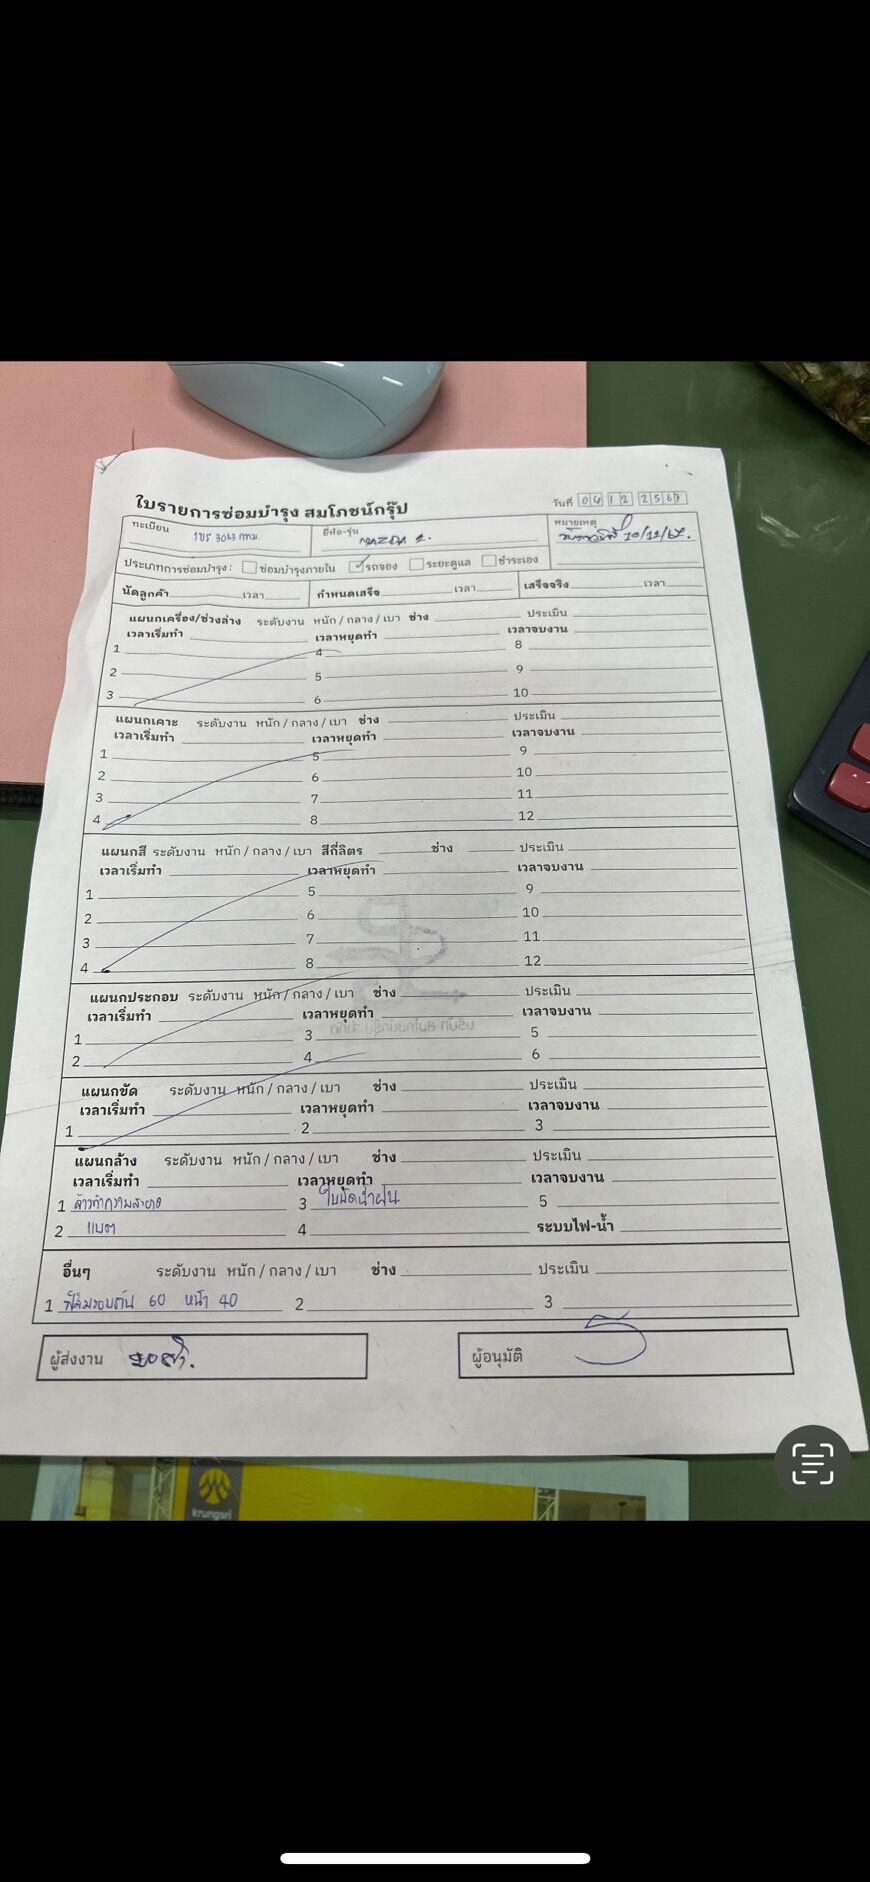 ใบรายการซ่อมบำรุง สมโภชน์กรุ๊ป วันที่ 04 12 2567
ทะเบียน 3043 กทม. ยี่ห้อ-รุ่น MAZDA 2. หมายเหตุ 10/12/67.
ประเภทการซ่อมบำรุง : ซ่อมบำรุงภายใน รถจอง ระยะดูแล ชำระเอง
นัดลูกค้า เวลา กำหนดเสร็จ เวลา เสร็จจริง เวลา
แผนกเครื่อง/ช่วงล่าง ระดับงาน หนัก / กลาง / เบา ช่าง ประเมิน
เวลาเริ่มทำ เวลาหยุดทำ เวลาจบงาน
1 4 8
2 5 9
3 6 10
แผนกเคาะ ระดับงาน หนัก / กลาง / เบา ช่าง ประเมิน
เวลาเริ่มทำ เวลาหยุดทำ เวลาจบงาน
1 5 9
2 6 10
3 7 11
4 8 12
แผนกสี ระดับงาน หนัก / กลาง / เบา สีกี่ลิตร ช่าง ประเมิน
เวลาเริ่มทำ เวลาหยุดทำ เวลาจบงาน
1 5 9
2 6 10
3 7 11
4 8 12
แผนกประกอบ ระดับงาน หนัก / กลาง / เบา ช่าง ประเมิน
เวลาเริ่มทำ เวลาหยุดทำ เวลาจบงาน
1 3 5
2 4 6
แผนกขัด ระดับงาน หนัก / กลาง / เบา ช่าง ประเมิน
เวลาเริ่มทำ เวลาหยุดทำ เวลาจบงาน
1 2 3
แผนกล้าง ระดับงาน หนัก / กลาง / เบา ช่าง ประเมิน
เวลาเริ่มทำ เวลาหยุดทำ เวลาจบงาน
1 ล้างทำความสะอาด 3 ใบปัดน้ำฝน 5
2 แบต 4 ระบบไฟ-น้ำ
อื่นๆ ระดับงาน หนัก / กลาง / เบา ช่าง ประเมิน
1 ฟิล์มรอบคัน 60 หน้า 40 2 3
ผู้ส่งงาน ผู้อนุมัติ
krungsri